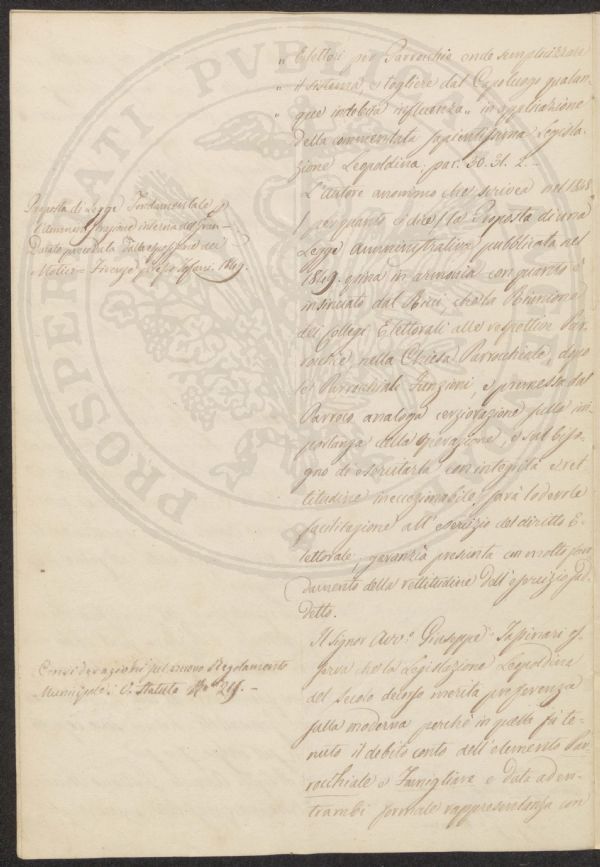 „ Elettori per Parrocchie onde semplicizzare
„ il sistema, e togliere dal Capoluogo qualun-
„ que indebita influenza „ in spiegazione
della commentata sapientissima Legisla-
zione Leopoldina. par. 30. 31. 2. -
L'autore anonimo che scrivea nel 1848
( per quanto si dice ) la Proposta di una
Legge Amministrativa pubblicata nel
1849. opina in armonia con quanto è
insinuato dal Ricci, che la Riunione
dei Collegi Elettorali alle respettive Par-
rocchie, nella Chiesa Parrocchiale, dopo
le Parrocchiali Funzioni, e premessa dal
Parroco analoga esortazione sulla im-
portanza della operazione, e sul biso-
gno di esercitarla con integrità e ret-
titudine ineccezionabile, sarà lodevole
facilitazione all'esercizio del diritto E-
lettorale, garanzia presunta con molto fon-
damento della rettitudine dell'esercizio sud-
detto.
Il Signor Avv.º Giuseppe os-
serva che la Legislazione Leopoldina
del Secolo decorso merita preferenza
sulla moderna perchè in quella fu te-
nuto il debito conto dell'elemento Par-
rocchiale e Famigliare e data ad en-
trambi formale rappresentanza con
Proposta di Legge Fondamentale p
l'amministrazione interna del Gran-
Ducato preceduta
Firenze presso 1849.
Considerazioni sul nuovo Regolamento
Municipale: V. Statuto Nº 219. -
PROSPERITATI PVBLICAE